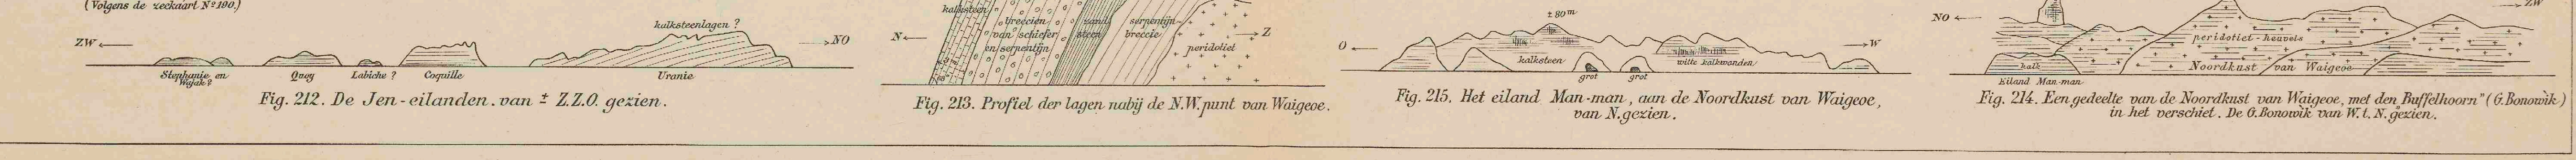 (Volgens de zeekaart Nº 190.)
ZW
NO
kalksteenlagen ?
Stephanie en
Wajak?
Quoy
Labiche ?
Coquille
Uranie
Fig. 212. De Jen-eilanden. van ± Z.Z.O. gezien.
N
Z
kalksteen
breccien
van schiefer
en serpentijn
zand
steen
serpentijn
breccie
peridotiet
Fig. 213. Profiel der lagen nabij de N.W. punt van Waigeoe.
± 80 m
O
W
kalksteen
grot
grot
witte kalkwanden
Fig. 215. Het eiland Man-man, aan de Noordkust van Waigeoe,
van N. gezien.
NO
ZW
peridotiet-heuvels
kalk
Noordkust van Waigeoe
Eiland Man-man
Fig. 214. Een gedeelte van de Noordkust van Waigeoe, met den "Buffelhoorn" (G. Bonowik)
in het verschiet. De G. Bonowik van W. t. N. gezien.